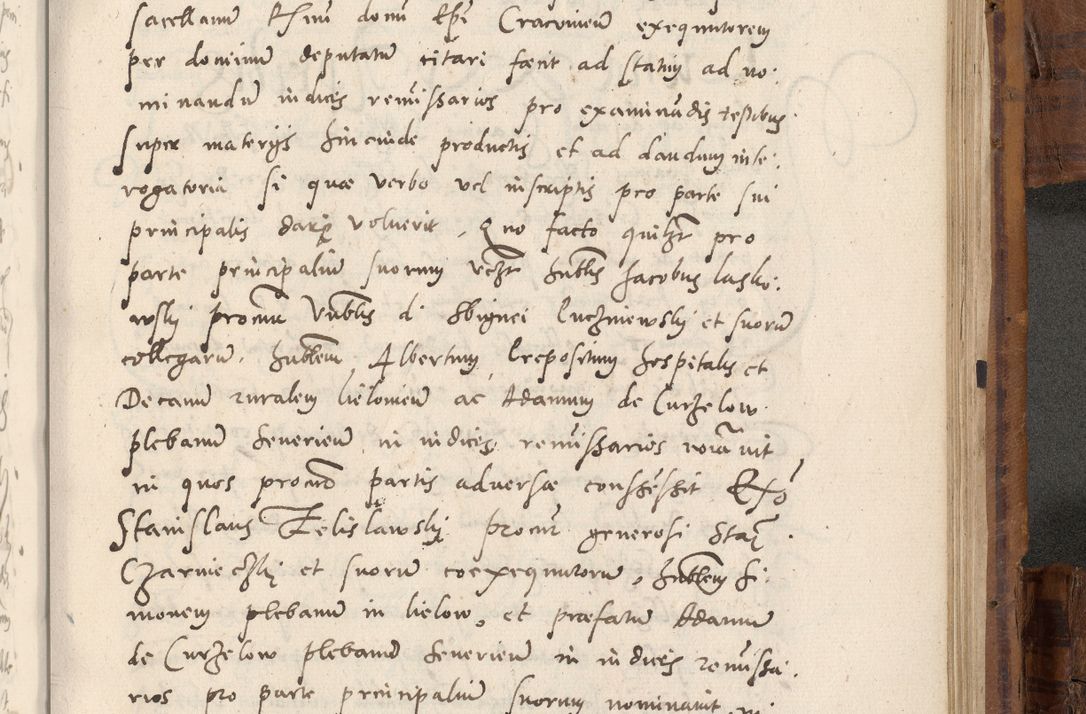 sacellanum Rssimi domini Epi Cracovien exequutorem
per dominum deputatum citari fecit ad statum ad no:
minandum iudices remissarios pro examinandis testibus
super materiis hincinde productis et ad dandum inte:
rogatoria si quae verbo vel inscriptis pro parte sui
principalis dari voluerit, Quo facto quilibet pro
parte principalium suorum videlicet honblis Jacobus lasko:
wskij procur Venblis d Sbignei Luczniewskij et suorum
collegarum, honblem Albertum praepositum hospitalis et
Decanum ruralem lielovien ac Adamum de Curzelow
plebanum Severien in iudices remissarios no(m)i(n)avit
in quos procur partis adversae consensit Ex adverso
Stanislaus Zelislawskij procur generosi Stan:
Czarnieczkij et suorum coexequutorum, honblem Si:
monem plebanum in lielow, et praefatum Adamum
de Curzelow plebanum Severien in iudices remissa:
rios pro parte principalium suorum nominavit,